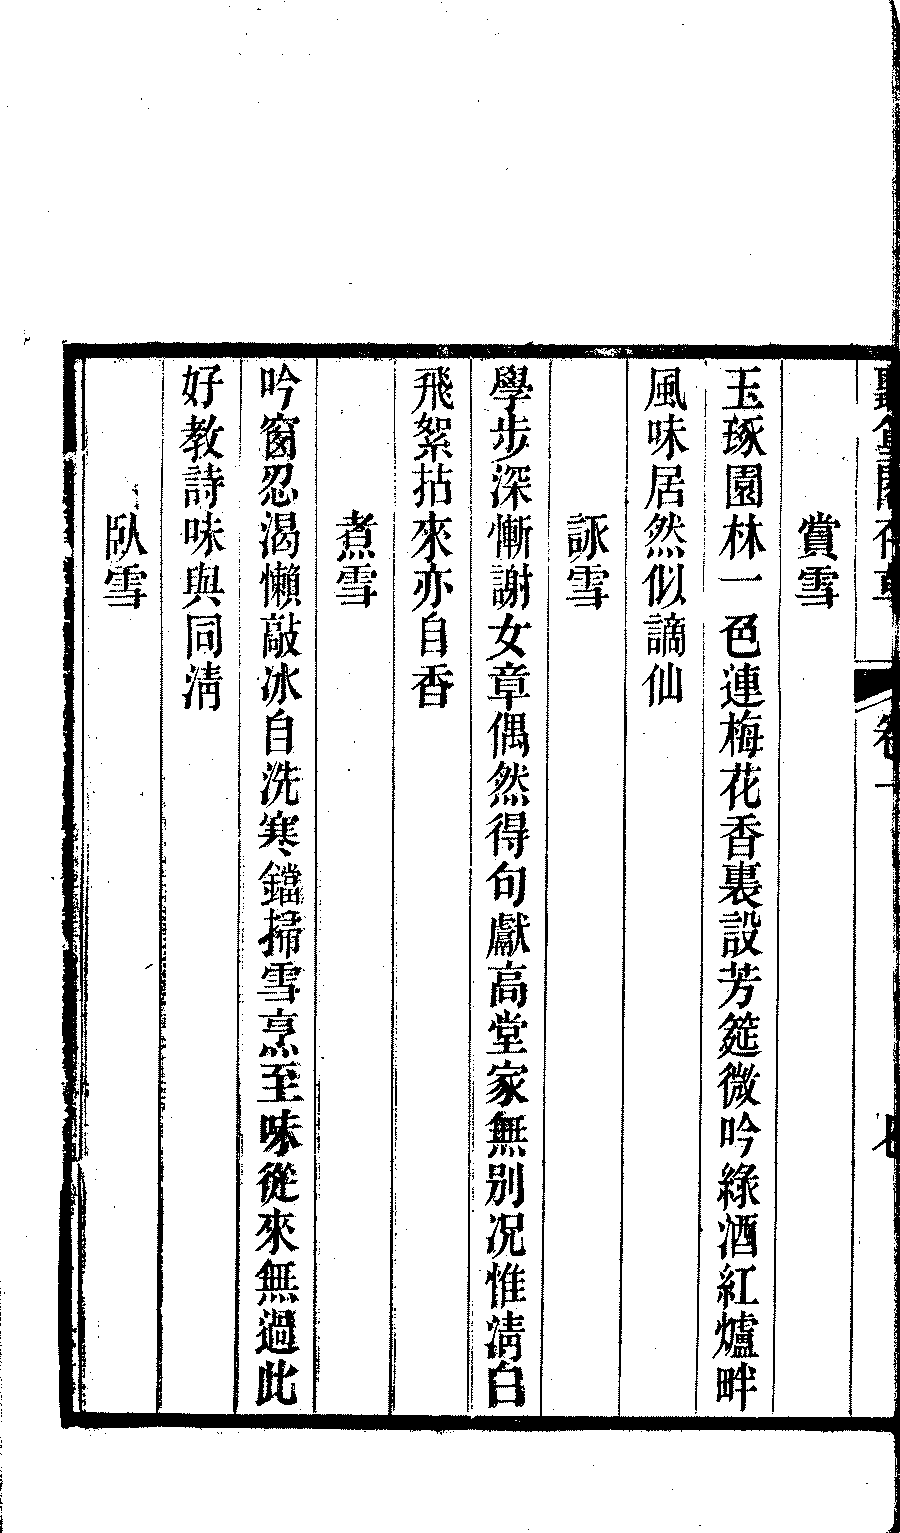 賞雪
玉琢園林一色連梅花香裏設芳筵微吟綠酒紅爐畔
風味居然似謫仙
詠雪
學步深慚謝女章偶然得句獻高堂家無别况惟淸白
飛絮拈來亦自香
煮雪
吟窗忍渴懶敲冰自洗寒鐺掃雪烹至味從來無過此
好教詩味與同淸
臥雪